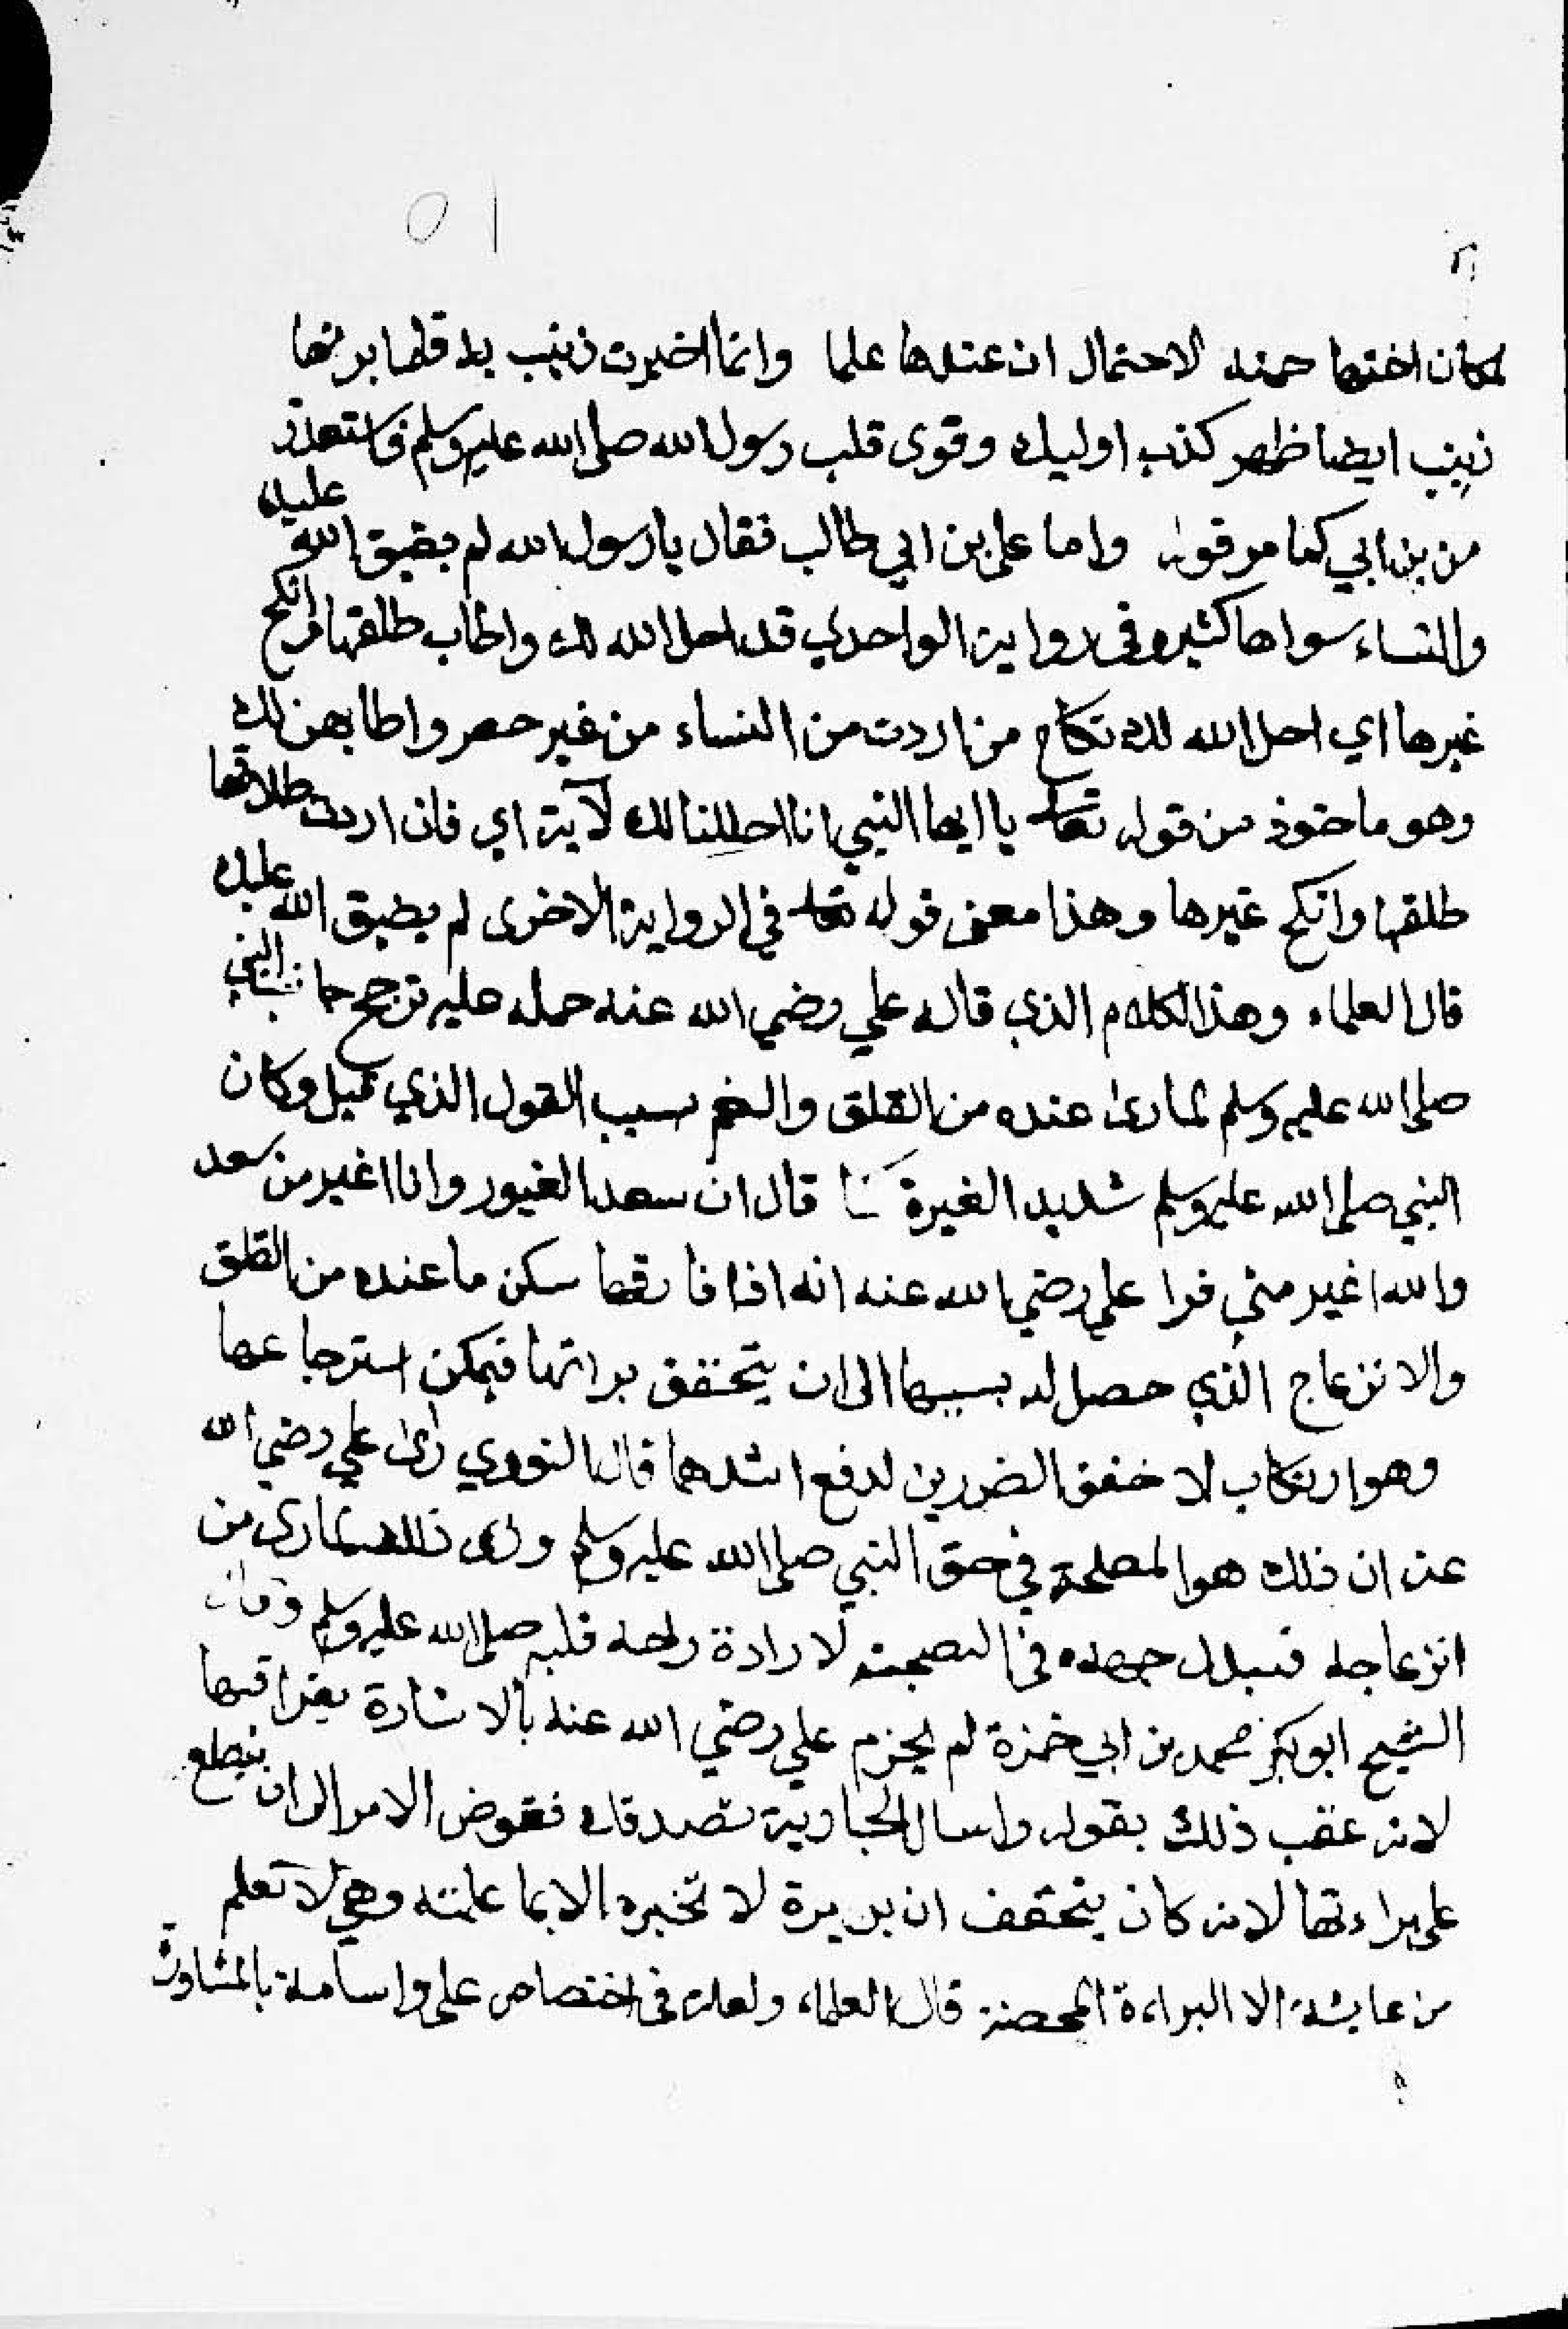 ١٥
لمكان اختها حمنه لاحتمال ان عندها علما وانما اخبرت زينب بد قلها برتها
زينب ايضا ظهر كذب اوليك وقوى قلب رسول الله صلى الله عليه وسلم فاستعذر
من بن ابي كما مر قوله واما على بن ابي طالب فقال يا رسول الله لم يضيق الله عليك
والنساء سواها كثيره وفى رواية الواحدي قد احل الله لك واطاب طلقها وانكح
غيرها اي احل الله لك نكاح من اردت من النساء من غير حصر واطابهن لك
وهو ماخوذ من قوله تعالى يا ايها النبي انا احللنا لك لآية اي فان اردت طلاقها
طلقها وانكح غيرها وهذا معنى قوله تعالى في الرواية الاخرى لم يضيق الله عليك
قال العلماء وهذا الكلام الذي قاله علي رضي الله عنه حمله عليه ترجح جانب النبي
صلى الله عليه وسلم لما راى عنده من القلق والغم بسبب القول الذي قيل وكان
النبي صلى الله عليه وسلم شديد الغيرة كما قال ان سعدا لغيور وانا اغير من سعد
والله اغير مني فرا على رضي الله عنه انه اذا فارقها سكن ما عنده من القلق
والانزعاج الذي حصل له بسببها الى ان يتحقق براتها فيمكن استرجاعها
وهو ارتكاب لا خفق الضررين لدفع اشدهما قال النووي راى علي رضي الله
عنه ان ذلك هو المصلحة في حق النبي صلى الله عليه وسلم وراى ذلك لما راى من
انزعاجه فبدل جهده فى النصيحة لارادة راحة قلبه صلى الله عليه وسلم وقال
الشيخ ابو بكر محمد بن ابي خمزة لم يجزم علي رضي الله عنه بالاشارة بفراقها
لانه عقب ذلك بقوله واسال الجارية تصدقك ففوض الامر الى ان يطلع
على براءتها لانه كان يتحقق ان بريرة لا تخبره الا بما علمته وهي لا تعلم
من عايشة الا البراءة المحضة قال العلماء ولعله فى اختصاص على واسامة بالمشاورة